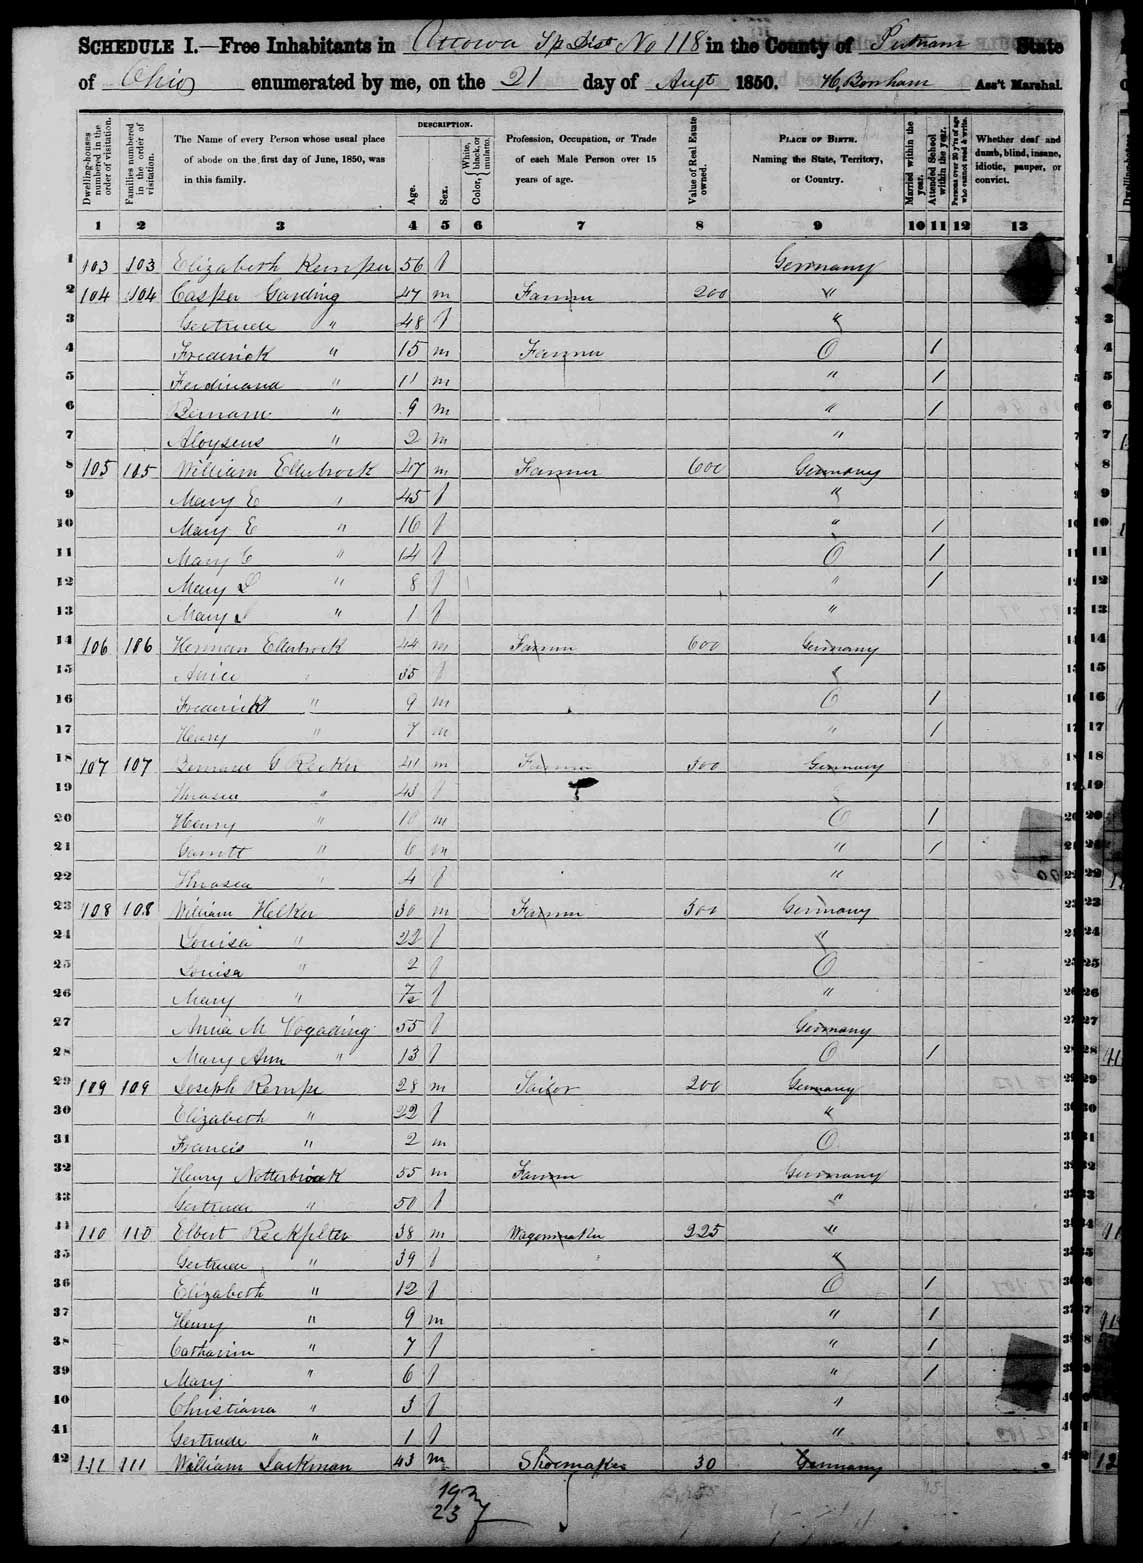 SCHEDULE I.—Free Inhabitants in Ottowa Tp Dist No 118 in the County of Putnam State
of Ohio enumerated by me, on the 21 day of Augt 1850. H. Bonham Ass't Marshal.
Dwelling-houses numbered in the order of visitation. Families numbered in the order of visitation. The Name of every Person whose usual place of abode on the first day of June, 1850, was in this family. DESCRIPTION. Age. Sex. Color, White, black, or mulatto. Profession, Occupation, or Trade of each Male Person over 15 years of age. Value of Real Estate owned. PLACE OF BIRTH. Naming the State, Territory, or Country. Married within the year. Attended School within the year. Persons over 20 y'rs of age who cannot read & write. Whether deaf and dumb, blind, insane, idiotic, pauper, or convict.
1 2 3 4 5 6 7 8 9 10 11 12 13
1 103 103 Elizabeth Kemper 56 f Germany
2 104 104 Casper Garding 47 m Farmer 200 "
3 Gertrude " 48 f "
4 Frederick " 15 m Farmer O 1
5 Ferdinand " 11 m " 1
6 Bernard " 9 m " 1
7 Aloysens " 2 m "
8 105 105 William Ellerbrock 47 m Farmer 600 Germany
9 Mary E " 45 f "
10 Mary E " 16 f " 1
11 Mary C " 14 f O 1
12 Mary L " 8 f " 1
13 Mary " 1 f "
14 106 106 Herman Ellerbrock 44 m Farmer 600 Germany
15 " 35 f "
16 Frederick " 9 m O 1
17 Henry " 7 m " 1
18 107 107 Bernard G Recker 41 m Farmer 300 Germany
19 " 43 f "
20 Henry " 10 m O 1
21 Garrett " 6 m " 1
22 " 4 f "
23 108 108 William Helker 30 m Farmer 300 Germany
24 Louisa " 22 f "
25 Louisa " 2 f O
26 Mary " f "
27 Anna M Vogading 55 f Germany
28 Mary Ann " 13 f O 1
29 109 109 Joseph Kempe 28 m Tailor 200 Germany
30 Elizabeth " 22 f "
31 Francis " 2 m O
32 Henry Notterbrock 55 m Farmer Germany
33 Gertrude " 50 f "
34 110 110 Elbert Reckfelter 38 m Wagonmaker 225 "
35 Gertrude " 39 f "
36 Elizabeth " 12 f O 1
37 Henry " 9 m " 1
38 Catharine " 7 f " 1
39 Mary " 6 f " 1
40 Christiana " 3 f "
41 Gertrude " 1 f "
42 111 111 William Lackman 43 m Shoemaker 30 Germany
19
23